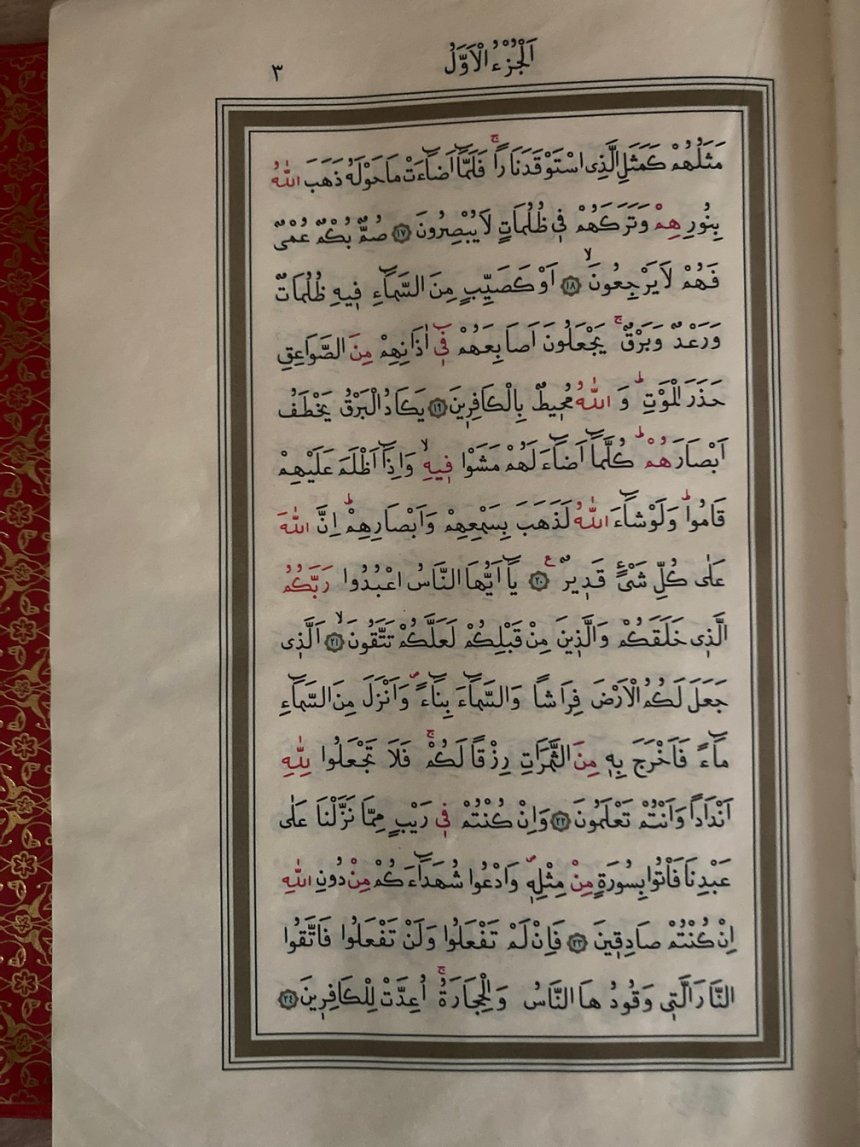 اَلْجُزْءُ الْاَوَّلُ
٣
مَثَلُهُمْ كَمَثَلِ الَّذِى اسْتَوْقَدَ نَارًاۚ فَلَمَّٓا اَضَٓاءَتْ مَاحَوْلَهُ ذَهَبَ اللّٰهُ
بِنُورِهِمْ وَتَرَكَهُمْ ف۪ى ظُلُمَاتٍ لَايُبْصِرُونَ ﴿١٧﴾ صُمٌّ بُكْمٌ عُمْىٌ
فَهُمْ لَايَرْجِعُونَۙ ﴿١٨﴾ اَوْ كَصَيِّبٍ مِنَ السَّمَٓاءِ ف۪يهِ ظُلُمَاتٌ
وَرَعْدٌ وَبَرْقٌۚ يَجْعَلُونَ اَصَابِعَهُمْ ف۪ٓى اٰذَانِهِمْ مِنَ الصَّوَاعِقِ
حَذَرَ الْمَوْتِۜ وَاللّٰهُ مُح۪يطٌ بِالْكَافِر۪ينَ ﴿١٩﴾ يَكَادُ الْبَرْقُ يَخْطَفُ
اَبْصَارَهُمْۜ كُلَّمَٓا اَضَٓاءَ لَهُمْ مَشَوْا ف۪يهِۙ وَاِذَٓا اَظْلَمَ عَلَيْهِمْ
قَامُواۜ وَلَوْ شَٓاءَ اللّٰهُ لَذَهَبَ بِسَمْعِهِمْ وَاَبْصَارِهِمْۜ اِنَّ اللّٰهَ
عَلٰى كُلِّ شَىْءٍ قَد۪يرٌ۟ ﴿٢٠﴾ يَٓا اَيُّهَا النَّاسُ اعْبُدُوا رَبَّكُمُ
الَّذ۪ى خَلَقَكُمْ وَالَّذ۪ينَ مِنْ قَبْلِكُمْ لَعَلَّكُمْ تَتَّقُونَۙ ﴿٢١﴾ اَلَّذ۪ى
جَعَلَ لَكُمُ الْاَرْضَ فِرَاشًا وَالسَّمَٓاءَ بِنَٓاءًۖ وَاَنْزَلَ مِنَ السَّمَٓاءِ
مَٓاءً فَاَخْرَجَ بِه۪ مِنَ الثَّمَرَاتِ رِزْقًا لَكُمْۚ فَلَا تَجْعَلُوا لِلّٰهِ
اَنْدَادًا وَاَنْتُمْ تَعْلَمُونَ ﴿٢٢﴾ وَاِنْ كُنْتُمْ ف۪ى رَيْبٍ مِمَّا نَزَّلْنَا عَلٰى
عَبْدِنَا فَأْتُوا بِسُورَةٍ مِنْ مِثْلِه۪ۖ وَادْعُوا شُهَدَٓاءَكُمْ مِنْ دُونِ اللّٰهِ
اِنْ كُنْتُمْ صَادِق۪ينَ ﴿٢٣﴾ فَاِنْ لَمْ تَفْعَلُوا وَلَنْ تَفْعَلُوا فَاتَّقُوا
النَّارَ الَّت۪ى وَقُودُهَا النَّاسُ وَالْحِجَارَةُۚ اُعِدَّتْ لِلْكَافِر۪ينَ ﴿٢٤﴾